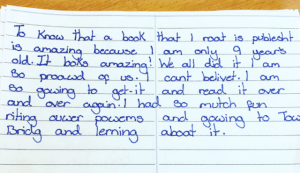 To Know that a book that I roat is publesht
is amazing because I am only 9 years
old. It boks amazing! We all did it I am
so proawd of us. I cant belivet. I am
so gowing to get it and read it over
and over again! I had so mutch fun
riting awer powems and gowing to Tow
Bridg and lerning aboat it.